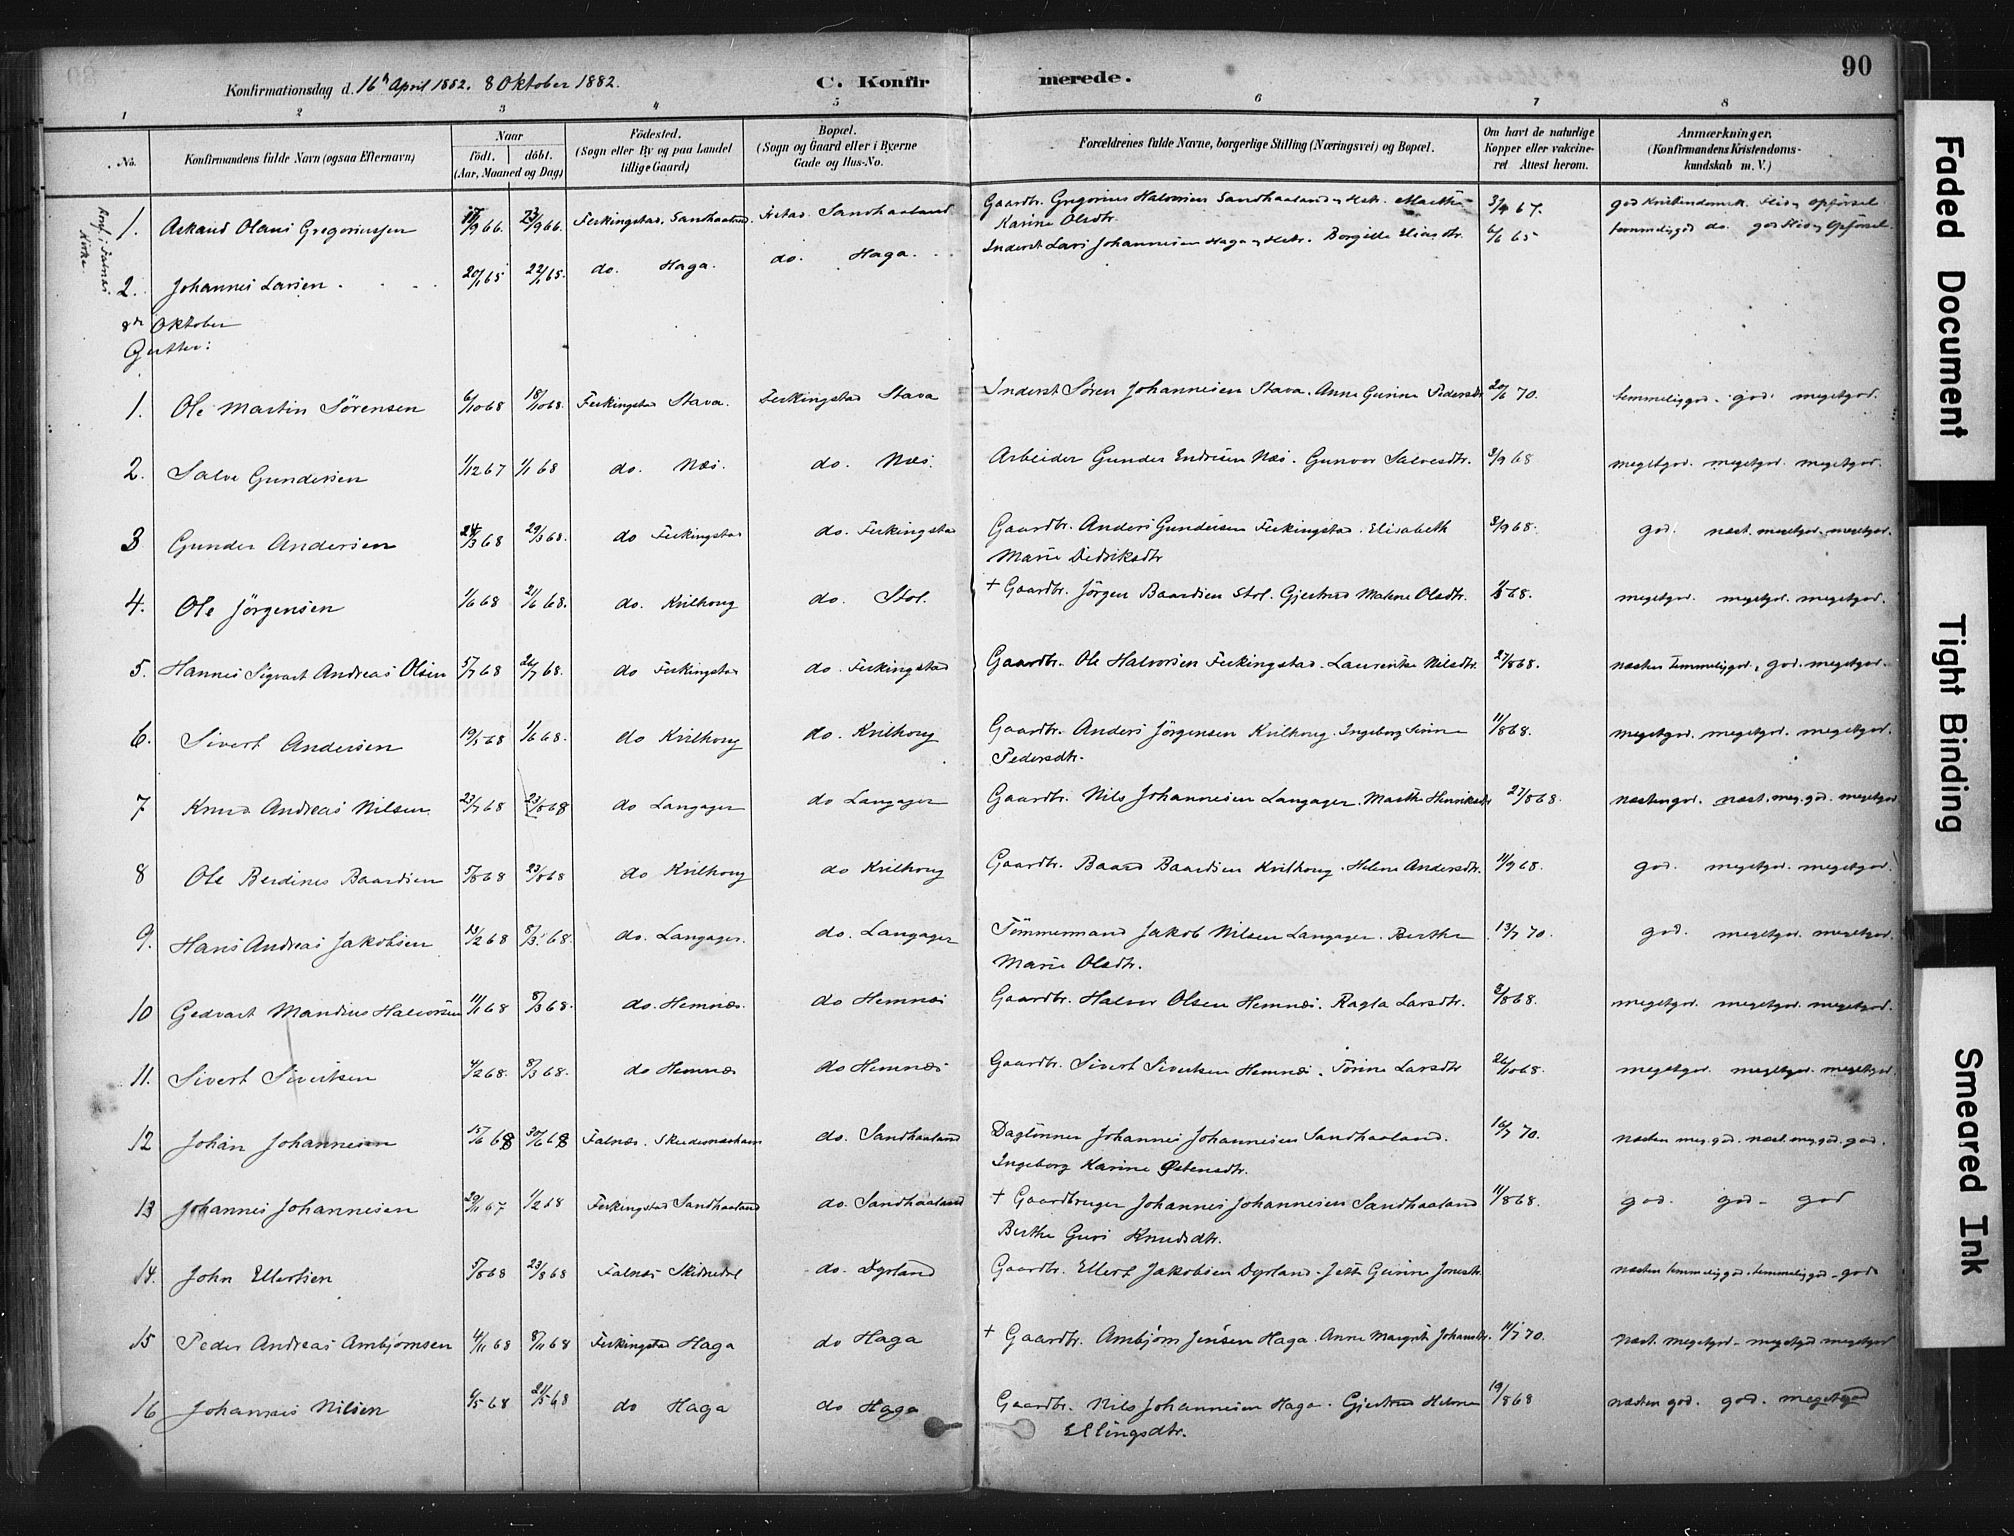 90
Konfirmationsdag d. 16h April 1882. 8 Oktober 1882. C. Konfirmerede.
1 2 3 4 5 6 7 8
No. Konfirmandens fulde Navn (ogsaa Efternavn) Naar født. døbt. (Aar, Maaned og Dag) Fødested. (Sogn eller By og paa Landet tillige Gaard) Bopæl. (Sogn og Gaard eller i Byerne Gade og Hus-No. Forældrenes fulde Navne, borgerlige Stilling (Næringsvei) og Bopæl. Om havt de naturlige Kopper eller vakcineret Attest herom. Anmærkninger. (Konfirmandens Kristendomskundskab m. V.)
Konf. i Falnes Kirke
1. Askaud Olaus Gregoriussen 23/9 66. Ferkingstad, Sandhaaland Sandhaaland Gaardbr. Gregorius Halvorsen Sandhaaland og Hstr. Marthe Karine Olsdtr. 3/4 67. god Kristendomsk. Flid og Opførsel
2. Johannes Larsen 20/1 65 22/1 65. do. Haga. do. Haga. Inderst Lars Johannesen Haga og Hstr. Borgille Eliasdtr. 6/6 65 temmelig god do. god Flid og Opførsel.
8de Oktober
Gutter:
1. Ole Martin Sørensen 6/10 68 18/10 68. Ferkingstad Stava. Ferkingstad Stava Inderst Søren Johannesen Stava. Anne Gurine Pedersdtr 20/6 70. temmelig god. god. megetgod.
2. Salve Gundersen 1/12 67 1/1 68 do. Næs. do. Næs. Arbeider Gunder Endresen Næs. Gunvor Salvesdtr. 3/9 68 megetgod. megetgod. megetgod.
3 Gunder Andersen 24/3 68 29/3 68. do Ferkingstad do. Ferkingstad Gaardbr. Anders Gundersen Ferkingstad. Elisabeth Marie Didriksdtr 3/9 68. god. næst. megetgod. megetgod.
4. Ole Jørgensen 1/6 68 21/6 68. do. Kvilhoug do. Stol. + Gaardbr. Jørgen Baardsen Stol. Gjertrud Malene Olsdtr. megetgod. megetgod. megetgod.
5. Hannes Sigvart Andreas Olsen 5/7 68 26/7 68. do Ferkingstad do. Ferkingstad Gaardbr. Ole Halvorsen Ferkingstad. Laurentse Nilsdtr. 27/8 68. næsten temmelig god. god. megetgod.
6. Sivert Andersen 19/5 68 1/6 68. do Kvilhoug do. Kvilhoug Gaardbr. Anders Jørgensen Kvilhoug. Ingeborg Serine Pedersdtr. 11/8 68. megetgod. megetgod. megetgod.
7 Knud Andreas Nilsen 23/7 68 23/8 68 do Langager do Langager Gaardbr. Nils Johannesen Langager. Marthe Henriksdtr 27/8 68. næstengod. næst. meg. god. megetgod
8 Ole Berdines Baardsen 5/8 68 23/8 68 do Kvilhoug do Kvilhoug Gaardbr. Baard Baardsen Kvilhoug. Helene Andersdtr. 11/9 68. god. megetgod. megetgod.
9. Hans Andreas Jakobsen 13/2 68 8/3 68. do. Langager. do. Langager Tømmermand Jakob Nilsen Langager. Berthe Marie Olsdtr. 13/7 70. god. megetgod. megetgod.
10 Gedvart Mandius Halvorsen 11/1 68 8/3 68. do. Hemnæs. do Hemnæs Gaardbr. Halvor Olsen Hemnæs. Ragla Larsdtr. 3/8 68. megetgod. megetgod. megetgod.
11. Sivert Sivertsen 4/2 68. 8/3 68. do Hemnæs do Hemnæs Gaardbr. Sivert Sivertsen Hemnæs. Torine Larsdtr 26/10 68. megetgod. megetgod. megetgod.
12 Johan Johannesen 15/6 68 30/6 68 Falnæs. Skudesneshavn do. Sandhaaland Dagløner Johannes Johannesen Sandhaaland. Ingeborg Karine Østensdtr. 16/7 70. næsten meg. god. næst. meg. god. god.
13 Johannes Johannesen 29/11 67 1/2 68 Ferkingstad Sandhaaland do. Sandhaaland + Gaardbruger Johannes Johannesen Sandhaaland Berthe Guri Knudsdtr. 11/8 68. god. god - god
14. John Ellertsen 5/8 68 23/8 68 Falnes do. Dyrland Gaardbr. Ellert Jakobsen Dyrland. Gurine næsten temmelig god. temmelig god - god
15 Peder Andreas Ambjørnsen 4/11 68 8/11 68 Ferkingstad Haga do Haga + Gaardbr. Ambjørn Jensen Haga. Anne Margrete 11/7 70. næst. megetgod - megetgod megetgod
16 Johannes Nilsen 6/5 68 21/5 68 do Haga do Haga Gaardbr. Nils Johannesen Haga. Gjertrud Helene Ellingsdtr. 19/8 68 næsten god. god. megetgod
Faded Document
Tight Binding
Smeared Ink